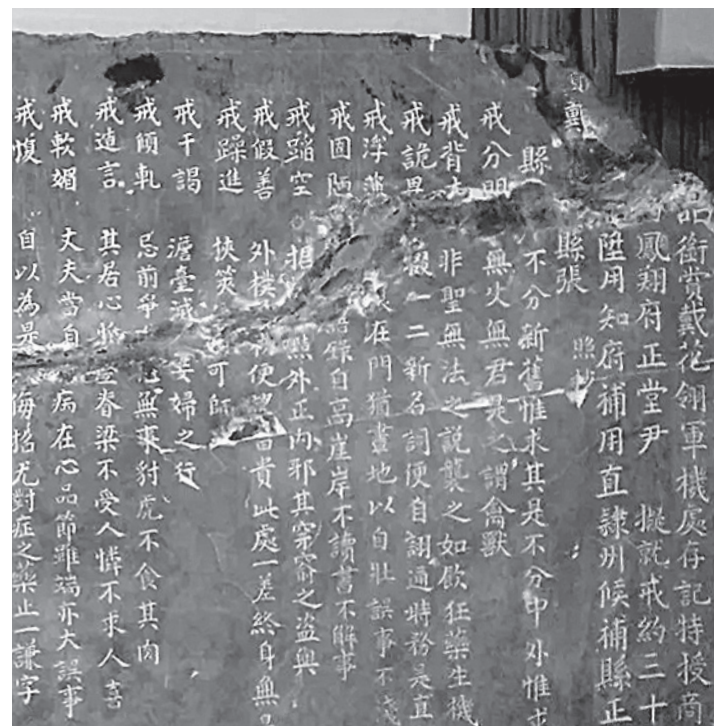 品銜賞戴花翎軍機處存記特授商
鳳翔府正堂尹 擬就戒約三十
陞用知府補用直隷州候補縣正
縣張 照抄
縣 不分新舊惟求其是不分中外惟求
戒分明 無父無君是之謂禽獸
戒背 非聖無法之說襲之如飲狂藥生機
戒詭異 掇一二新名詞便自詡通時務是直
戒浮薄 在門猶畫地以自壯誤事不淺
戒固陋 錄自高崖岸不讀書不解事
戒蹈空 相 點外正內邪其穿窬之盜與
戒假善 外樸 便望富貴此處一差終身無
戒躁進 挾筴 可師
戒干謁 澹臺滅 妾婦之行
戒傾軋 忌前爭 無事豺虎不食其肉
戒造言 其居心 脊梁不受人憐不求人喜
戒軟媚 丈夫當自 病在心品節雖端亦大誤事
戒愎 自以為是 侮招尤對症之藥止一謙字